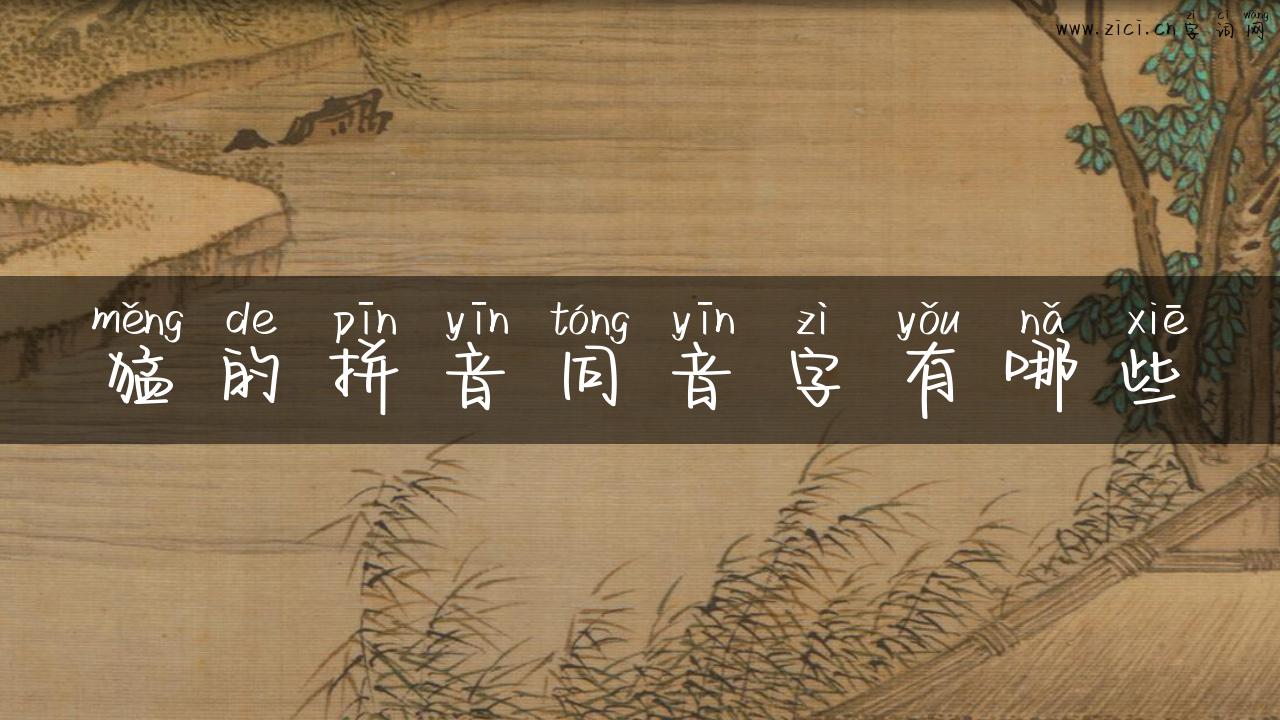 zì cí wǎng
www.zici.cn字词网
měng de pīn yīn tóng yīn zì yǒu nǎ xiē
猛的拼音同音字有哪些